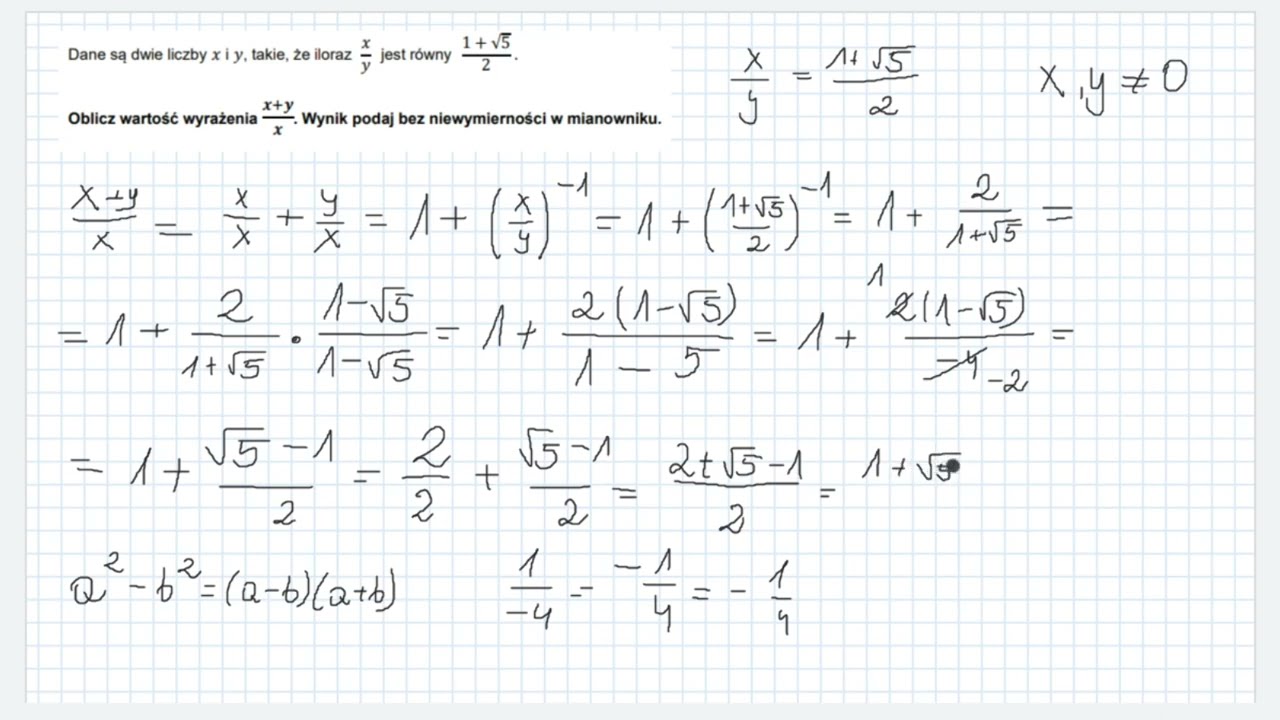 Dane są dwie liczby x i y, takie, że iloraz x/y jest równy (1+√5)/2.
x/y = (1+√5)/2   x, y ≠ 0
Oblicz wartość wyrażenia (x+y)/x. Wynik podaj bez niewymierności w mianowniku.
(x+y)/x = x/x + y/x = 1 + (x/y)^-1 = 1 + ((1+√5)/2)^-1 = 1 + 2/(1+√5) =
= 1 + 2/(1+√5) · (1-√5)/(1-√5) = 1 + 2(1-√5)/(1-5) = 1 + 1 2(1-√5)/(-4) -2 =
= 1 + (√5-1)/2 = 2/2 + (√5-1)/2 = (2+√5-1)/2 = 1+√5
a² - b² = (a-b)(a+b)   1/(-4) = (-1)/4 = - 1/4